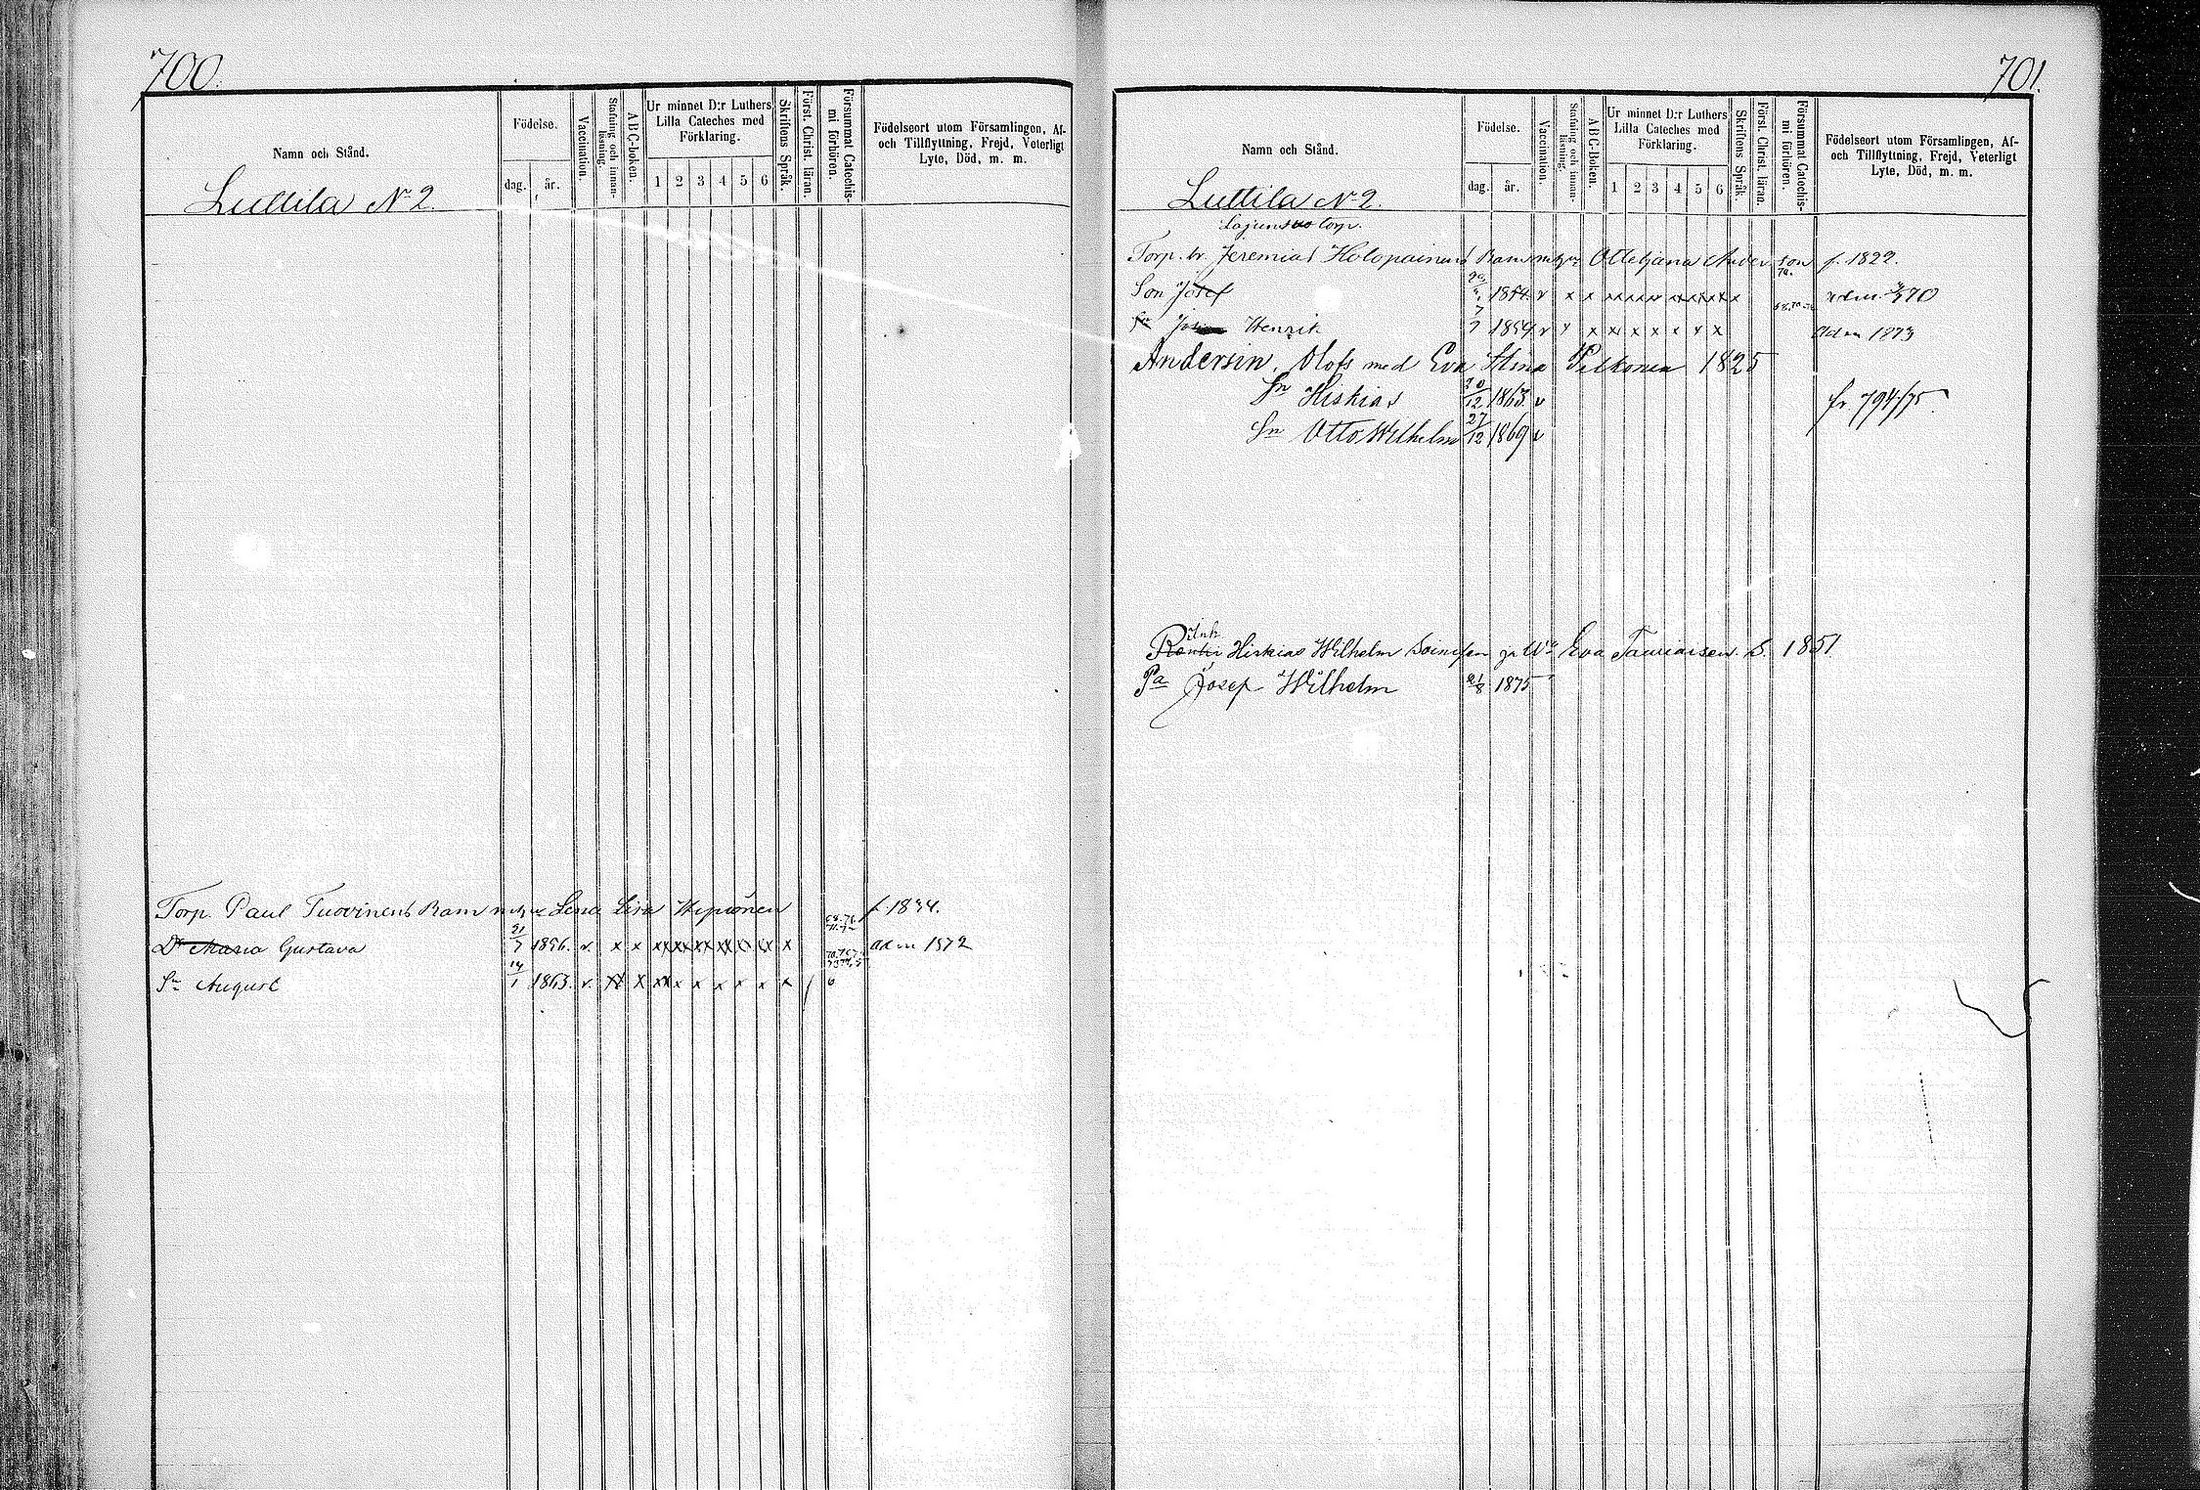 700.
Namn och Stånd.
Födelse.
dag. år.
Vaccination.
Stafning och innan-läsning.
ABC-boken.
Ur minnet D:r Luthers
Lilla Cateches med
Förklaring.
1 2 3 4 5 6
Skriftens Språk.
Först. Christ. läran.
Försummat Catechis-mi förhören.
Födelseort utom Församlingen, Af-
och Tillflyttning, Frejd, Veterligt
Lyte, Död, m. m.
Luttila N 2.
Torp. Paul Tuovinens Barn Lena Lisa f. 1834.
Dr Maria Gustava 21/7 1856. v. x x x x x x x x x adm 1872
Sn August 14/1 1863. v. x x x x x x x x x 6
701.
Namn och Stånd.
Födelse.
dag. år.
Vaccination.
Stafning och innan-läsning.
ABC-Boken.
Ur minnet D:r Luthers
Lilla Cateches med
Förklaring.
1 2 3 4 5 6
Skriftens Språk.
Först. Christ. läran.
Försummat Catechis-mi förhören.
Födelseort utom Församlingen, Af-
och Tillflyttning, Frejd, Veterligt
Lyte, Död, m. m.
Luttila N 2.
torp.
Torp. br. Jeremias Holopainens Barn f. 1822.
Son Josef 1854. v x x x x x x x x x
Henrik 1859 v x x x x x x x adm 1873
Andersin, Olofs med Eva Stina Pelkonen 1825
Sn Hiskias 30/12 1863. v fr 794/75.
Sn Otto Wilhelm 27/12 1869 v
Inh.
Hiskias Wilhelm Soininen Eva 1851
Pa Josep Wilhelm 21/8 1875